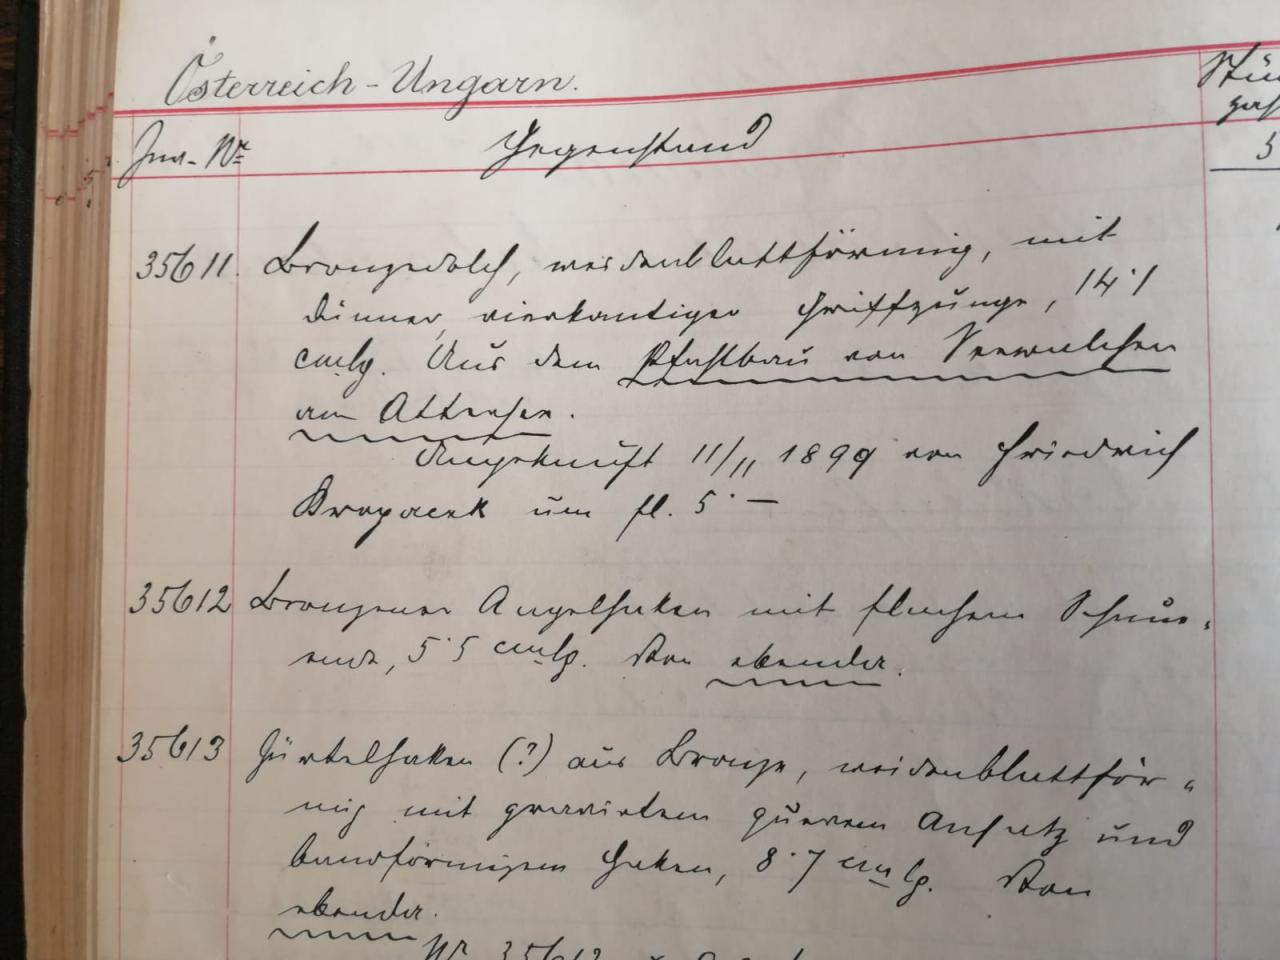 Österreich-Ungarn.
Stü
zah
Inv.-Nr. Gegenstand
5
35611. Bronzedolch, weidenblattförmig, mit
dünner, vierkantiger Griffzunge, 14·1
cm lg. Aus dem Pfahlbau von Seewalchen
am Attersee.
Angekauft 11/11 1899 von Friedrich
Kropacek um fl. 5·—
35612 Bronzener Angelhaken mit flachem Schnur-
ende, 5·5 cm lg. Von ebenda.
35613 Gürtelhaken (?) aus Bronze, weidenblattför-
mig mit gravirtem querem Ansatz und
bandförmigem Haken, 8·7 cm lg. Von
ebenda.
Nr 35612 u.